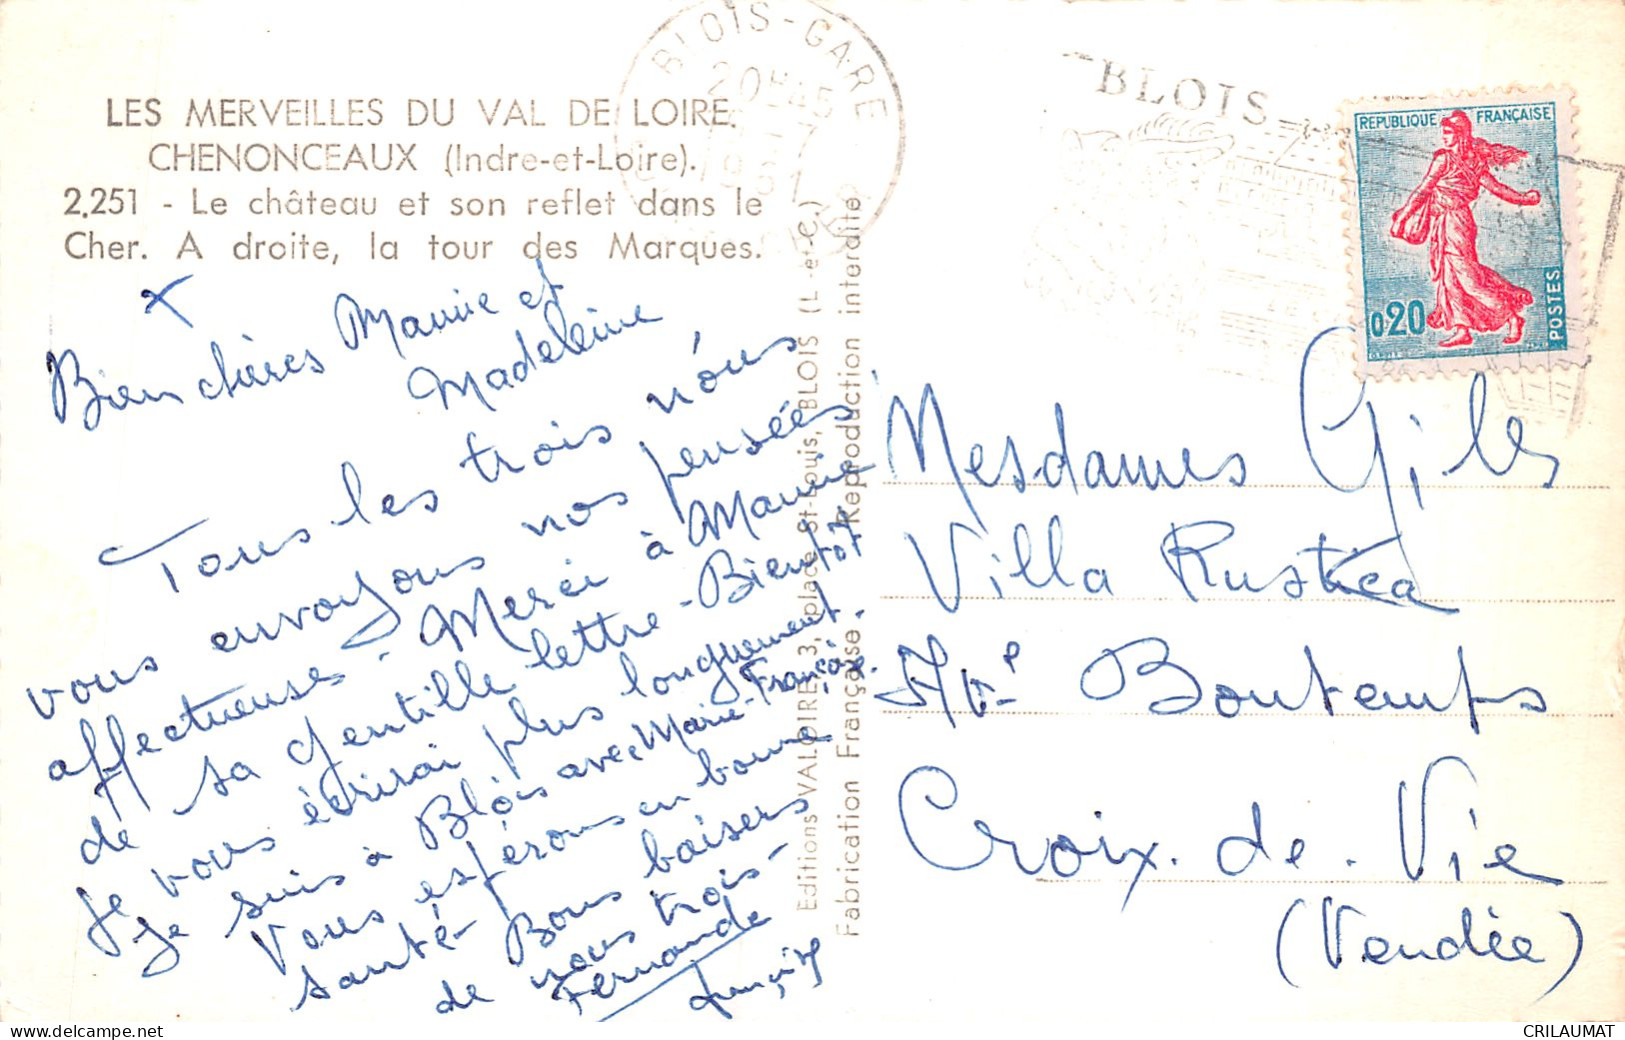 LES MERVEILLES DU VAL DE LOIRE.
CHENONCEAUX (Indre-et-Loire).
2.251 - Le château et son reflet dans le
Cher. A droite, la tour des Marques.
BLOIS-GARE
20H45
BLOIS
REPUBLIQUE FRANÇAISE
0,20
POSTES
X
Bien chères Mamie et
Madeleine
Tous les trois nous
vous envoyons nos pensées
affectueuses. Merci à Mamie
de sa gentille lettre - Bientôt
je vous écrirai plus longuement.
Je suis à Blois avec Marie-Françoise.
Vous espérons en bonne
santé - Bons baisers
de nous trois -
Fernande
Editions VALOIRE, 3, place St-Louis, BLOIS (L.-et-C.)
Fabrication Française - Reproduction interdite
Mesdames Gilles
Villa Rustica
Ave Bontemps
Croix. de. Vie
(Vendée)
www.delcampe.net
CRILAUMAT